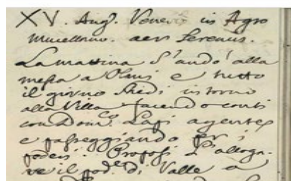 XV. Aug. Vener. in Agro
Mucellano. aer Serenus.
La mattina s'andò alla
messa a e tutto
il giorno stiedi intorno
alla Villa facendo conti
con Dom.co Lapi agente
e passeggiando per i
poderi. l'allogare
il pod.e d. Valle a